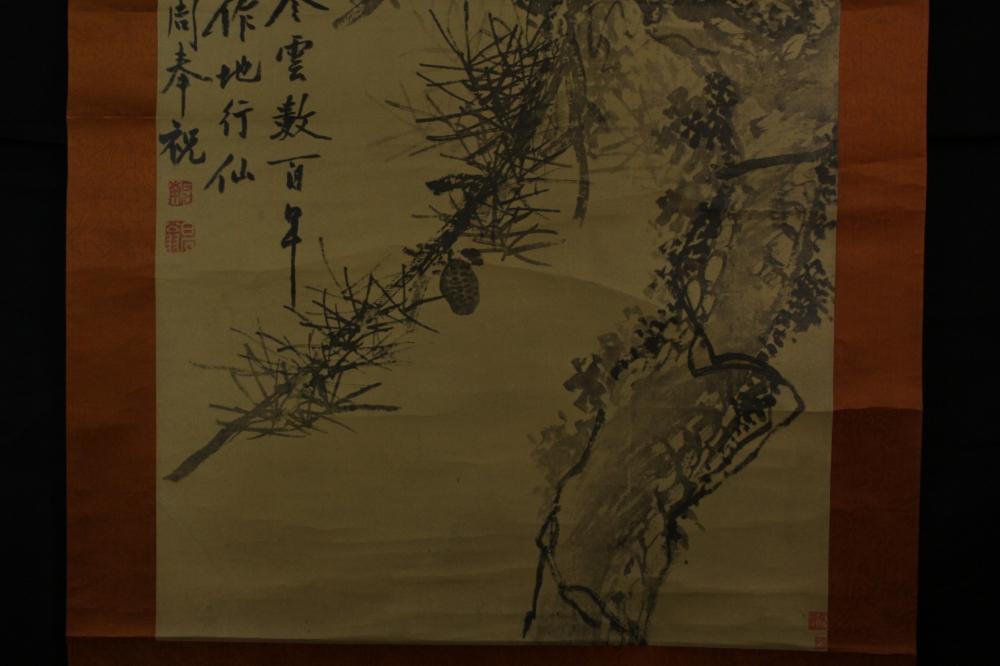 雲數百年
作地行仙
周奉祝